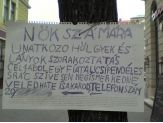 NŐK SZÁMÁRA
UNATKOZÓ HÖLGYEK ÉS
LÁNYOK SZÓRAKOZTATÁS
CÉLJÁBÓL EGY FIATAL CSIPENDÉLES
SRÁC SZÍVESEN MEGISMERKEDNE
VELED HA TE IS AKAROD TELEFONSZÁM